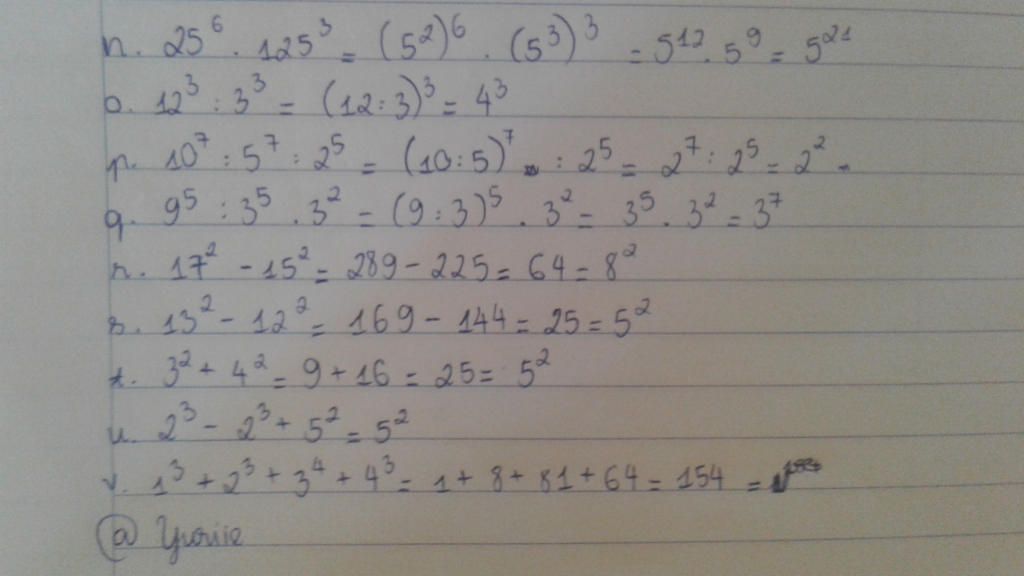 n. 25⁶ · 125³ = (5²)⁶ · (5³)³ = 5¹² · 5⁹ = 5²¹
o. 12³ : 3³ = (12 : 3)³ = 4³
p. 10⁷ : 5⁷ : 2⁵ = (10 : 5)⁷ : 2⁵ = 2⁷ : 2⁵ = 2²
q. 9⁵ : 3⁵ · 3² = (9 : 3)⁵ · 3² = 3⁵ · 3² = 3⁷
r. 17² - 15² = 289 - 225 = 64 = 8²
s. 13² - 12² = 169 - 144 = 25 = 5²
t. 3² + 4² = 9 + 16 = 25 = 5²
u. 2³ - 2³ + 5² = 5²
v. 1³ + 2³ + 3⁴ + 4³ = 1 + 8 + 81 + 64 = 154 =
@